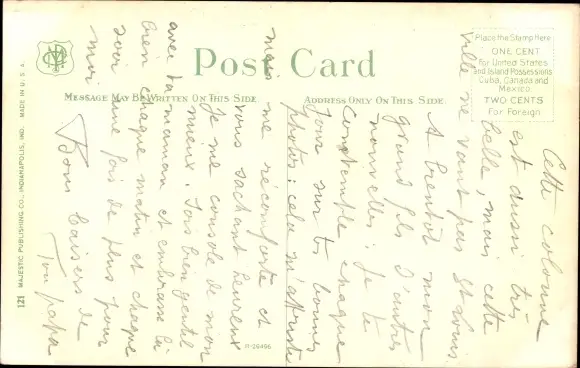 Post Card
MESSAGE MAY BE WRITTEN ON THIS SIDE
ADDRESS ONLY ON THIS SIDE
Place the Stamp Here
ONE CENT
For United States
and Island Possessions
Cuba, Canada and
Mexico
TWO CENTS
For Foreign
Cette colonne
est aussi très
belle, mais cette
ville ne vaut pas St Louis
A bientôt mon
grand fils d'autres
nouvelles : je te
contemple chaque
jour sur tes bonnes
photos : cela m'attriste
mais me réconforte et
vous sachant heureux
Je me console de mon
mieux. Sois bien gentil
avec ta maman et embrasse la
bien chaque matin et chaque
soir une fois de plus pour
moi.
Bons baisers de
Ton papa
121 MAJESTIC PUBLISHING CO., INDIANAPOLIS, IND. MADE IN U. S. A.